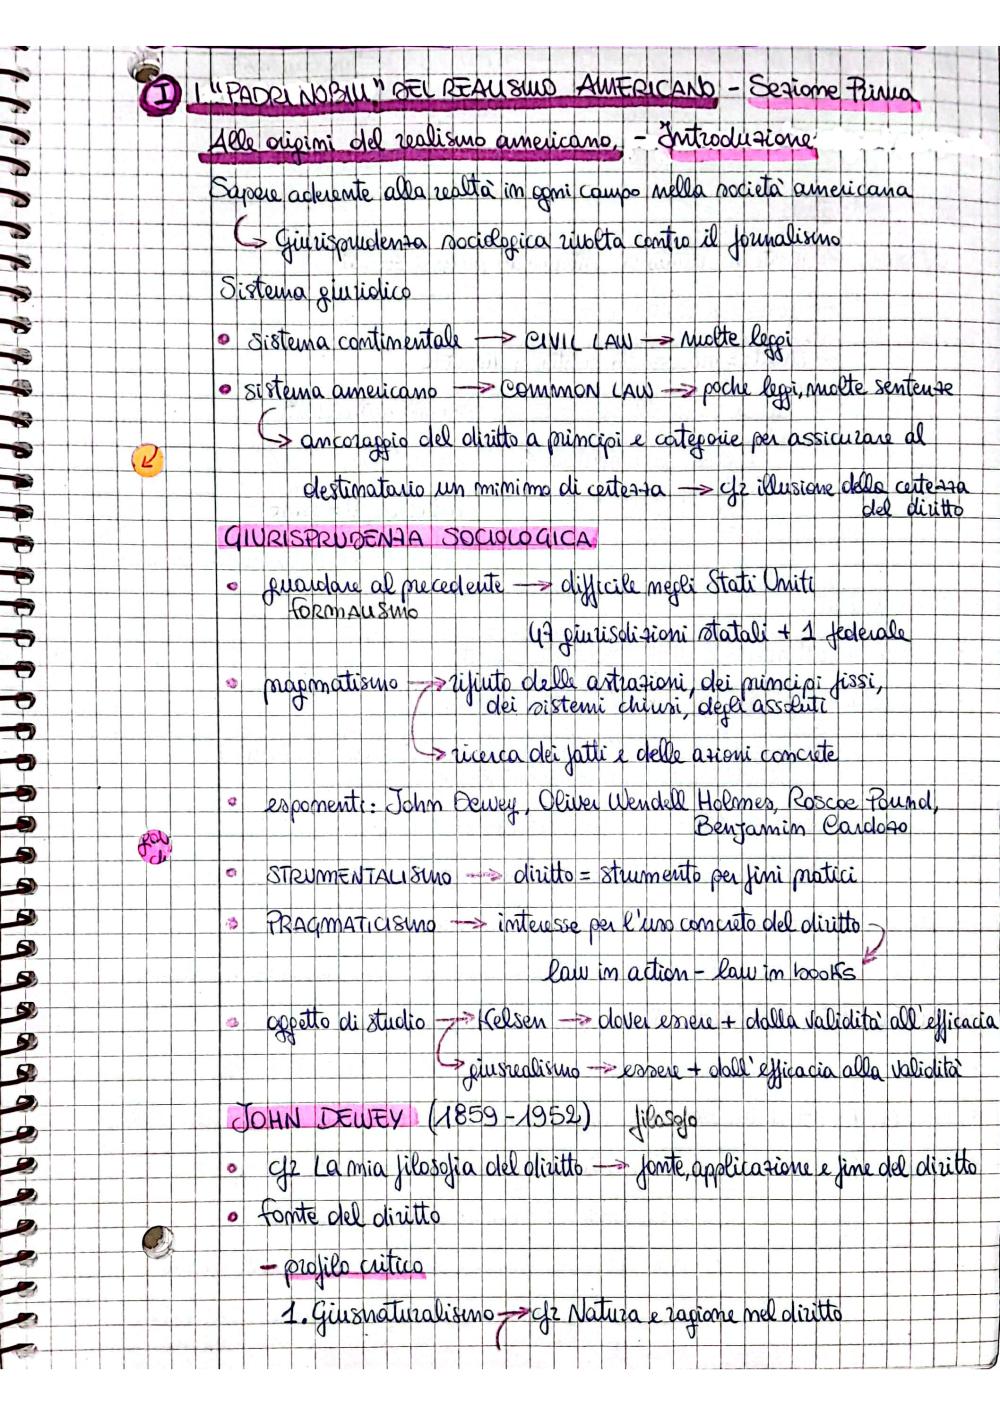 I I "PADRI NOBILI" DEL REALISMO AMERICANO - Sezione Prima
Alle origini del realismo americano. - Introduzione
Sapere aderente alla realtà in ogni campo nella società americana
↳ Giurisprudenza sociologica rivolta contro il formalismo
Sistema giuridico
• sistema continentale → CIVIL LAW → molte leggi
• sistema americano → COMMON LAW → poche leggi, molte sentenze
↳ ancoraggio del diritto a principi e categorie per assicurare al
destinatario un minimo di certezza → cfr illusione della certezza
del diritto
GIURISPRUDENZA SOCIOLOGICA
• guardare al precedente → difficile negli Stati Uniti
FORMALISMO
47 giurisdizioni statali + 1 federale
• pragmatismo → rifiuto delle astrazioni, dei principi fissi,
dei sistemi chiusi, degli assoluti
↳ ricerca dei fatti e delle azioni concrete
• esponenti: John Dewey, Oliver Wendell Holmes, Roscoe Pound,
Benjamin Cardozo
• STRUMENTALISMO → diritto = strumento per fini pratici
• PRAGMATICISMO → interesse per l'uso concreto del diritto
law in action - law in books
• oggetto di studio → Kelsen → dover essere + dalla validità all'efficacia
↳ giusrealismo → essere + dall'efficacia alla validità
JOHN DEWEY (1859-1952) filosofo
• cfr La mia filosofia del diritto → fonte, applicazione e fine del diritto
• fonte del diritto
- profilo critico
1. Giusnaturalismo → cfr Natura e ragione nel diritto